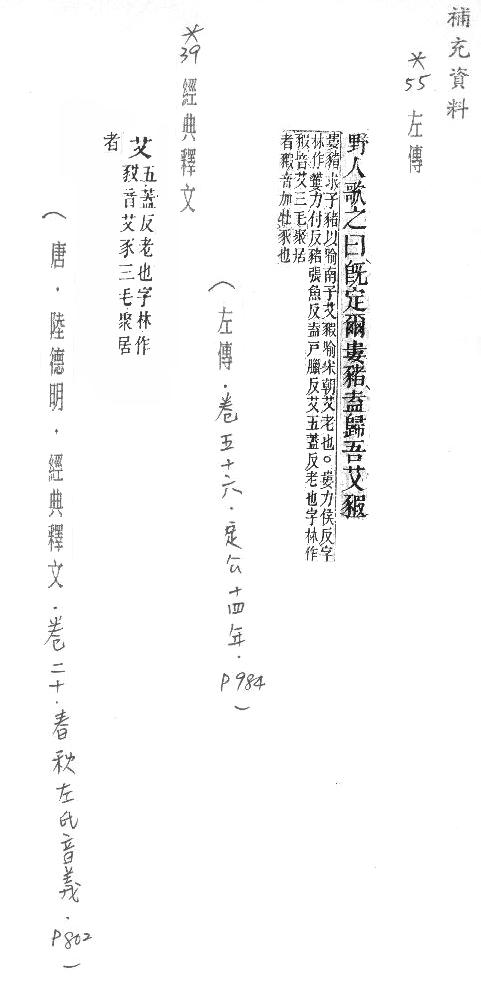 補充資料
*55 左傳
野人歌之曰既定爾婁豬盍歸吾艾豭
婁豬求子豬以喻南子艾豭喻宋朝艾老也○婁力侯反字
林作䝏力付反豬張魚反盍戶臘反艾五蓋反老也字林作
豭音艾三毛聚居
者豭音加牡豕也
(左傳．卷五十六．定公十四年．P984)
*39 經典釋文
艾五蓋反老也字林作
豛音艾豕三毛聚居
者
(唐．陸德明．經典釋文．卷二十．春秋左氏音義．P802)